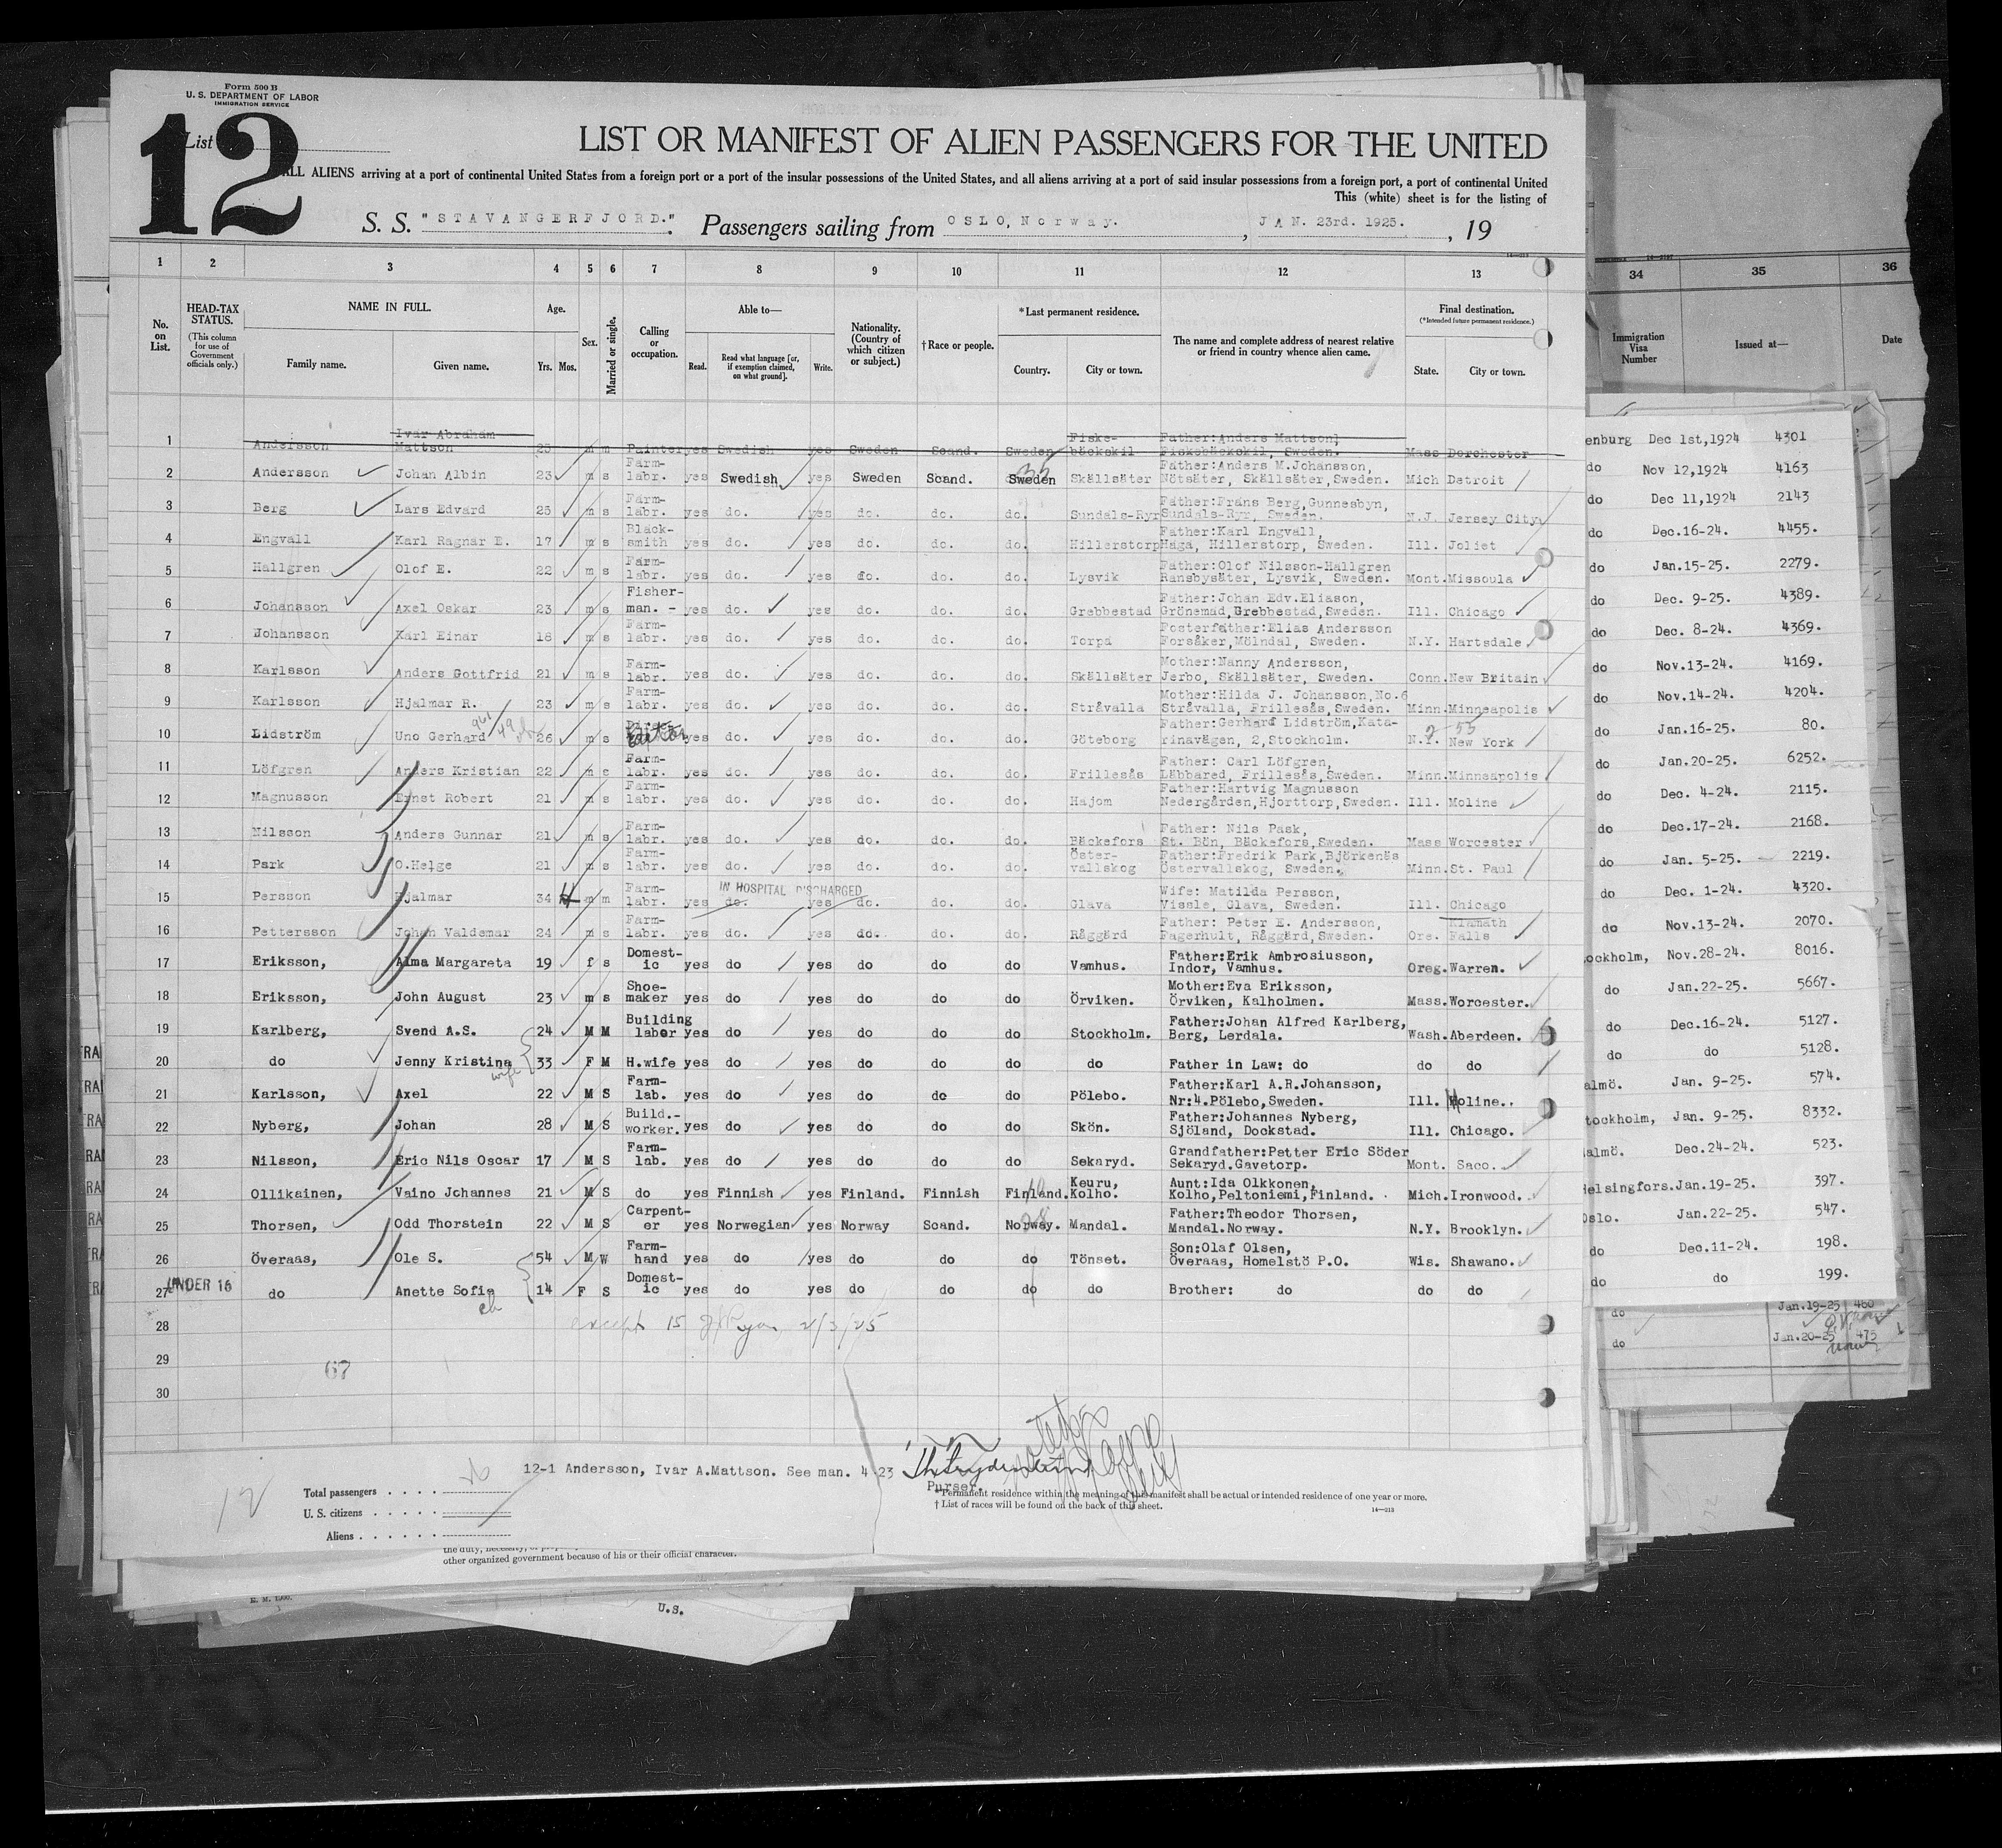 Form 500 B
U. S. DEPARTMENT OF LABOR
IMMIGRATION SERVICE
List 12
LIST OR MANIFEST OF ALIEN PASSENGERS FOR THE UNITED
ALL ALIENS arriving at a port of continental United States from a foreign port or a port of the insular possessions of the United States, and all aliens arriving at a port of said insular possessions from a foreign port, a port of continental United
This (white) sheet is for the listing of
S. S. "STAVANGERFJORD." Passengers sailing from OSLO, Norway. , JAN. 23rd. 1925. , 19
1 2 3 4 5 6 7 8 9 10 11 12 13
34 35 36
No. on List.
HEAD-TAX STATUS.
(This column for use of Government officials only.)
NAME IN FULL.
Family name. Given name.
Age.
Yrs. Mos.
Sex.
Married or single.
Calling or occupation.
Able to—
Read. Read what language [or, if exemption claimed, on what ground]. Write.
Nationality. (Country of which citizen or subject.)
†Race or people.
*Last permanent residence.
Country. City or town.
The name and complete address of nearest relative or friend in country whence alien came.
Final destination.
(*Intended future permanent residence.)
State. City or town.
Immigration Visa Number
Issued at—
Date
1 Andersson Ivar Abraham Mattson 25 m m Painter yes Swedish yes Sweden Scand. Sweden Fiskebäckskil Father:Anders Mattson, Fiskebäckskil, Sweden. Mass Dorchester enburg Dec 1st,1924 4301
2 Andersson Johan Albin 23 m s Farm-labr. yes Swedish yes Sweden Scand. Sweden Skällsäter Father:Anders M.Johansson, Nötsäter, Skällsäter,Sweden. Mich Detroit do Nov 12,1924 4163
3 Berg Lars Edvard 25 m s Farm-labr. yes do. yes do. do. do. Sundals-Ryr Father:Frans Berg,Gunnesbyn, Sundals-Ryr, Sweden. N.J. Jersey City do Dec 11,1924 2143
4 Engvall Karl Ragnar E. 17 m s Black-smith yes do. yes do. do. do. Hillerstorp Father:Karl Engvall, Haga, Hillerstorp, Sweden. Ill. Joliet do Dec.16-24. 4455.
5 Hallgren Olof E. 22 m s Farm-labr. yes do. yes do. do. do. Lysvik Father:Olof Nilsson-Hallgren Ransbysäter, Lysvik, Sweden. Mont. Missoula do Jan.15-25. 2279.
6 Johansson Axel Oskar 23 m s Fisher-man. - yes do. yes do. do. do. Grebbestad Father:Johan Edv.Eliason, Grönemad,Grebbestad,Sweden. Ill. Chicago do Dec. 9-25. 4389.
7 Johansson Karl Einar 18 m s Farm-labr. yes do. yes do. do. do. Torpa Fosterfather:Elias Andersson Forsåker,Mölndal, Sweden. N.Y. Hartsdale do Dec. 8-24. 4369.
8 Karlsson Anders Gottfrid 21 m s Farm-labr. yes do. yes do. do. do. Skällsäter Mother:Nanny Andersson, Jerbo, Skällsäter, Sweden. Conn. New Britain do Nov.13-24. 4169.
9 Karlsson Hjalmar R. 23 m s Farm-labr. yes do. yes do. do. do. Stråvalla Mother:Hilda J. Johansson,No.6 Stråvalla, Frillesås, Sweden. Minn. Minneapolis do Nov.14-24. 4204.
10 Lidström Uno Gerhard 26 m s yes do. yes do. do. do. Göteborg Father:Gerhard Lidström,Kata-rinavägen, 2,Stockholm. N.Y. New York do Jan.16-25. 80.
11 Löfgren Anders Kristian 22 m s Farm-labr. yes do. yes do. do. do. Frillesås Father: Carl Löfgren, Läbbared, Frillesås,Sweden. Minn. Minneapolis do Jan.20-25. 6252.
12 Magnusson Ernst Robert 21 m s Farm-labr. yes do. yes do. do. do. Hajom Father:Hartvig Magnusson Nedergården,Hjorttorp,Sweden. Ill. Moline do Dec. 4-24. 2115.
13 Nilsson Anders Gunnar 21 m s Farm-labr. yes do. yes do. do. do. Bäckefors Father: Nils Pask, St. Bön, Bäckefors,Sweden. Mass Worcester do Dec.17-24. 2168.
14 Park O.Helge 21 m s Farm-labr. yes do. yes do. do. do. Öster-vallskog Father:Fredrik Park,Björkenäs Östervallskog, Sweden. Minn. St. Paul do Jan. 5-25. 2219.
IN HOSPITAL DISCHARGED
15 Persson Hjalmar 34 m m Farm-labr. yes do. yes do. do. do. Glava Wife: Matilda Persson, Vissle, Glava, Sweden. Ill. Chicago do Dec. 1-24. 4320.
16 Pettersson Johan Valdemar 24 m s Farm-labr. yes do. yes do. do. do. Råggärd Father: Peter E. Andersson, Fagerhult, Råggärd,Sweden. Ore. Klamath Falls do Nov.13-24. 2070.
17 Eriksson, Alma Margareta 19 f s Domest-ic yes do yes do do do Vamhus. Father:Erik Ambrosiusson, Indor, Vamhus. Oreg. Warren. ockholm, Nov.28-24. 8016.
18 Eriksson, John August 23 m s Shoe-maker yes do yes do do do Örviken. Mother:Eva Eriksson, Örviken, Kalholmen. Mass. Worcester. do Jan.22-25. 5667.
19 Karlberg, Svend A.S. 24 M M Building labor yes do yes do do do Stockholm. Father:Johan Alfred Karlberg, Berg, Lerdala. Wash. Aberdeen. do Dec.16-24. 5127.
20 do Jenny Kristina wife 33 F M H.wife yes do yes do do do do Father in Law: do do do do do 5128.
21 Karlsson, Axel 22 M S Farm-lab. yes do yes do do do Pölebo. Father:Karl A.R.Johansson, Nr:4.Pölebo,Sweden. Ill. Moline.. almö. Jan. 9-25. 574.
22 Nyberg, Johan 28 M S Build.-worker. yes do yes do do do Skön. Father:Johannes Nyberg, Sjöland, Dockstad. Ill. Chicago. tockholm, Jan. 9-25. 8332.
23 Nilsson, Eric Nils Oscar 17 M S Farm-lab. yes do yes do do do Sekaryd. Grandfather:Petter Eric Söder Sekaryd.Gavetorp. Mont. Saco. almö. Dec.24-24. 523.
24 Ollikainen, Vaino Johannes 21 M S do yes Finnish yes Finland. Finnish Finland. Keuru, Kolho. Aunt:Ida Olkkonen, Kolho,Peltoniemi,Finland. Mich. Ironwood. elsingfors. Jan.19-25. 397.
25 Thorsen, Odd Thorstein 22 M S Carpent-er yes Norwegian yes Norway Scand. Norway. Mandal. Father:Theodor Thorsen, Mandal.Norway. N.Y. Brooklyn. Oslo. Jan.22-25. 547.
26 Överaas, Ole S. 54 M W Farm-hand yes do yes do do do Tönset. Son:Olaf Olsen, Överaas, Homelstö P.O. Wis. Shawano. do Dec.11-24. 198.
27 UNDER 16 do Anette Sofie ch 14 F S Domest-ic yes do yes do do do do Brother: do do do do do 199.
28 except 15 2/3/25
29 67
30
do Jan.19-25 460
do Jan.20-25 475
12-1 Andersson, Ivar A.Mattson. See man. 4-23
Purser.
12
Total passengers
U. S. citizens
Aliens
*Permanent residence within the meaning of this manifest shall be actual or intended residence of one year or more.
† List of races will be found on the back of this sheet.
14—213
other organized government because of his or their official character.
U.S.